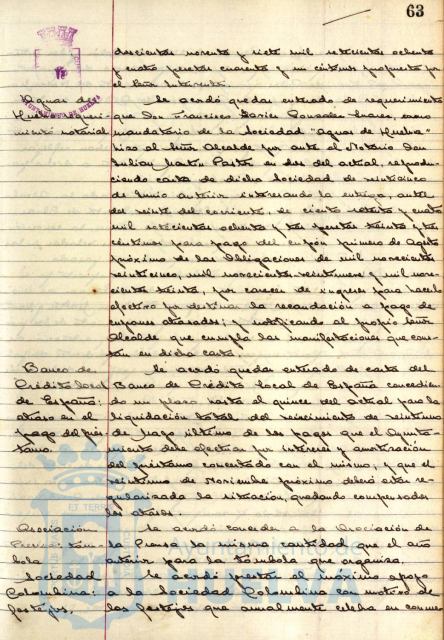 63
doscientas noventa y siete mil setecientas ochenta
y cuatro pesetas cuarenta y un céntimos propuesta por
el Señor Interventor.
Aguas de Se acordó quedar enterado de requerimiento
Huelva, requeri- que Don Francisco Javier González Suárez, como
miento notarial mandatario de la Sociedad "Aguas de Huelva"
hizo al Señor Alcalde por ante el Notario Don
Julián Martín Pastor en dos del actual, reprodu-
ciendo carta de dicha Sociedad de
de Junio anterior interesando la entrega, antes
del veinte del corriente, de ciento setenta y cuatro
mil setecientas ochenta y tres pesetas treinta y tres
céntimos para pago del cupón primero de Agosto
próximo de las Obligaciones de mil novecientos
veinticinco, mil novecientos veintinueve y mil nove-
cientos treinta, por carecer de ingresos para hacerlo
efectivo por destinar la recaudación a pago de
cupones atrasados; y notificando al propio Señor
Alcalde que cumpla las manifestaciones que cons-
tan en dicha carta.
Banco de Se acordó quedar enterado de carta del
Crédito local Banco de Crédito local de España concedien-
de España: do un plazo hasta el quince del actual para la
atraso en el liquidación total del vencimiento de veintiuno
pago del prés- de Mayo último de los pagos que el Ayunta-
tamo. miento debe efectuar por intereses y amortización
del préstamo concertado con el mismo, y que el
veintiuno de Noviembre próximo deberá estar re-
gularizada la situación, quedando compensados
los atrasos.
Asociación Se acordó conceder a la Asociación de
Prensa: tóm- la Prensa la misma cantidad que el año
bola anterior para la tómbola que organiza.
Sociedad Se acordó prestar el máximo apoyo
Colombina: a la Sociedad Colombina con motivo de
festejos. los festejos que anualmente celebra en conme-
Ayuntamiento de
HUELVA